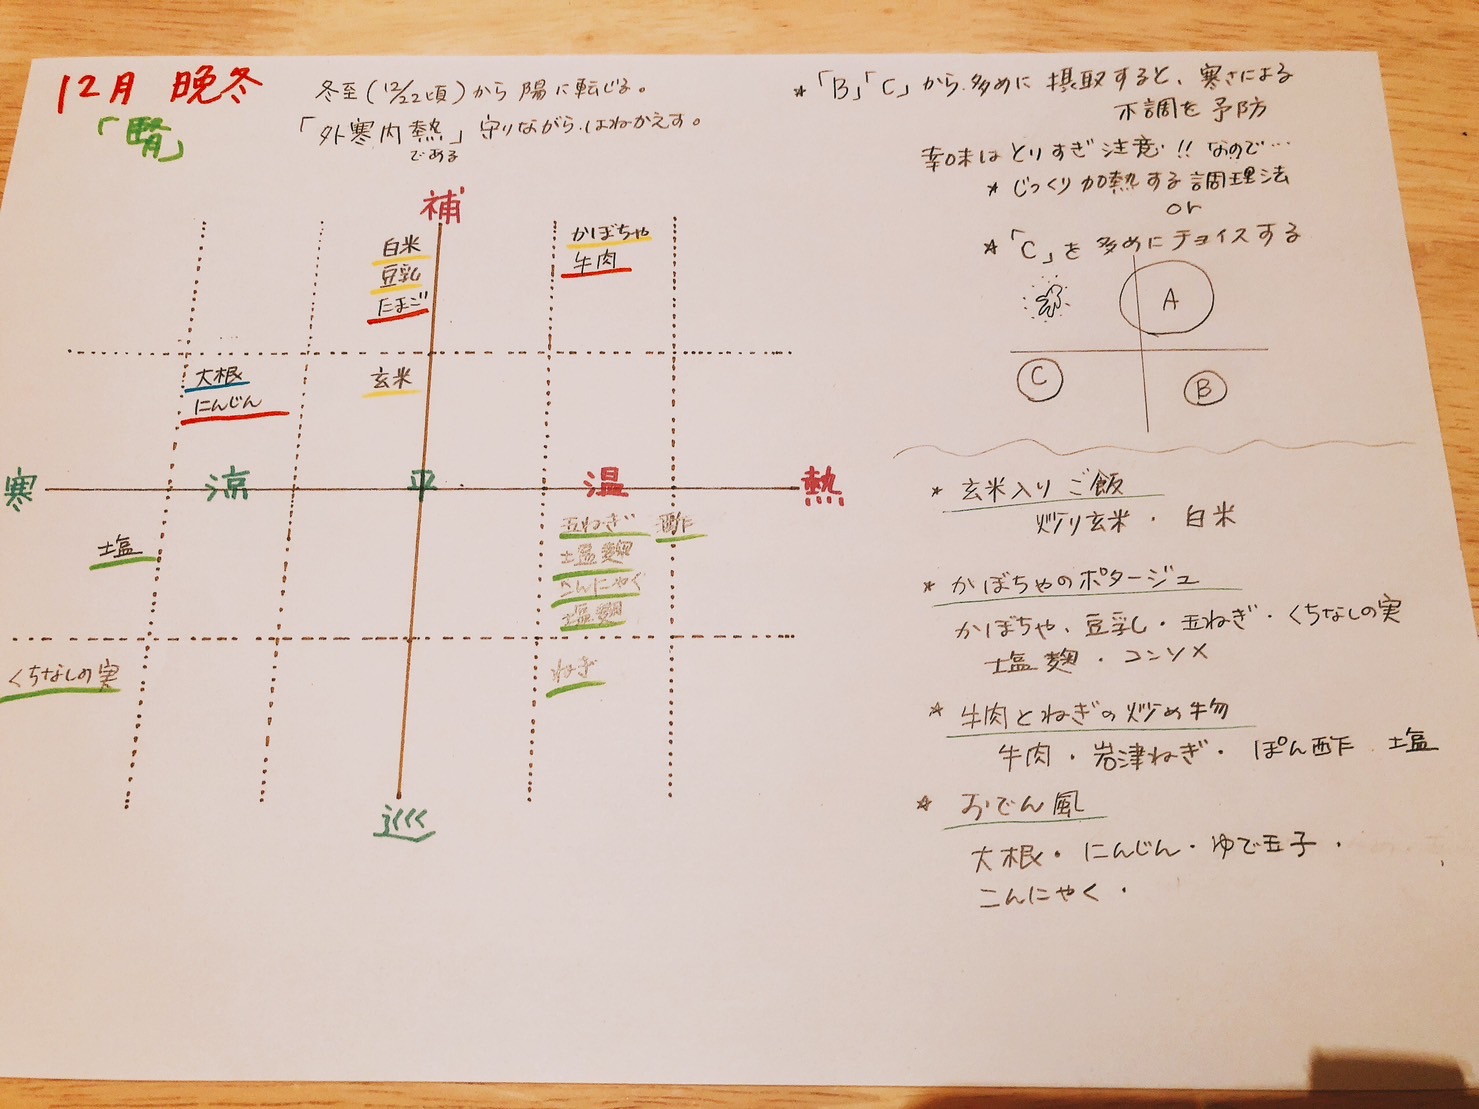 12月 晩冬
冬至(12/22頃)から陽に転じる。
「外寒内熱」守りながら、はねかえす。
である
＊「B」「C」から多めに摂取すると、寒さによる
不調を予防
辛味はとりすぎ注意!! なので…
＊じっくり加熱する調理法
or
＊「C」を多めにチョイスする
A
C
B
補
白米
豆乳
たまご
かぼちゃ
牛肉
大根
にんじん
玄米
寒
涼
平
温
熱
塩
玉ねぎ
酢
塩麹
こんにゃく
塩麹
くちなしの実
ねぎ
巡
＊玄米入りご飯
炒り玄米・白米
＊かぼちゃのポタージュ
かぼちゃ、豆乳・玉ねぎ・くちなしの実
塩麹・コンソメ
＊牛肉とねぎの炒め物
牛肉・岩津ねぎ・ぽん酢 塩
☆おでん風
大根・にんじん・ゆで玉子・
こんにゃく・